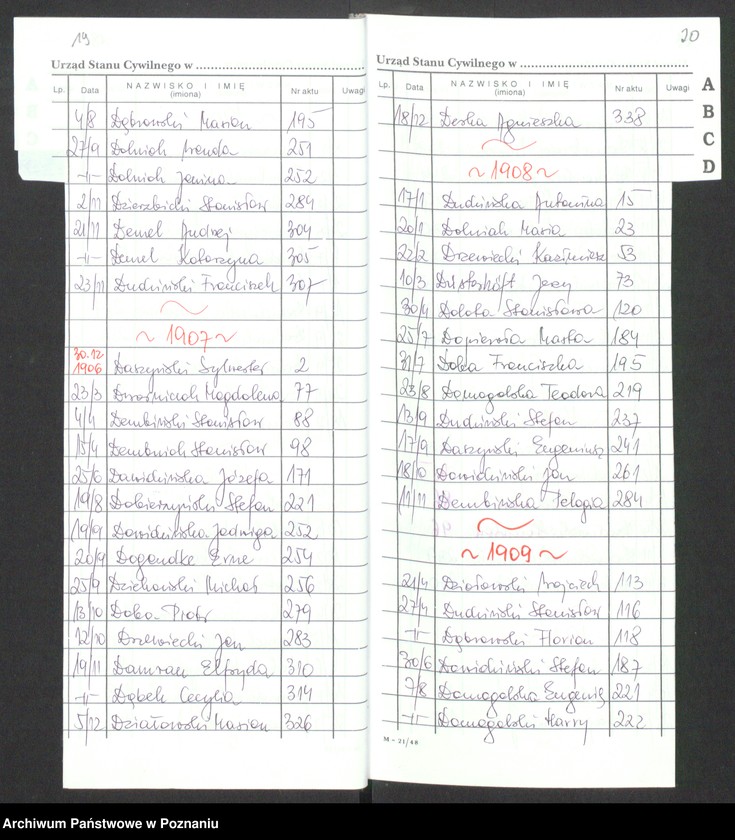 19
Urząd Stanu Cywilnego w
Lp. Data NAZWISKO I IMIĘ (imiona) Nr aktu Uwagi
4/8 Dąbrowski Marian 195
27/9 Dolniak Wanda 251
-"- Dolniak Janina 252
2/11 Dzierzbicki Stanisław 284
21/11 Demel Andrzej 304
-"- Demel Katarzyna 305
23/11 Dudziński Franciszek 307
~ 1907 ~
30.12 1906 Daszyński Sylwester 2
23/3 Magdalena 77
4/4 Dembiński Stanisław 88
15/4 Stanisław 98
25/6 Dawidzińska Józefa 171
19/8 Dobierzyński Stefan 221
19/9 Dawidzińska Jadwiga 252
20/9 Erne 254
25/9 Michał 256
13/10 Piotr 279
12/10 Drzewiecki Jan 283
19/11 Elfryda 310
-"- Dąbek Cecylia 314
5/12 Działowski Marian 326
20
Urząd Stanu Cywilnego w
Lp. Data NAZWISKO I IMIĘ (imiona) Nr aktu Uwagi
A
B
C
D
18/12 Deska Agnieszka 338
~ 1908 ~
17/1 Dudzińska Antonina 15
20/1 Dolniak Maria 23
22/2 Drzewiecki Kazimierz 53
10/3 Jerzy 73
30/4 Stanisława 120
25/7 Dopierała Marta 184
31/7 Franciszka 195
23/8 Domagalska Teodora 219
13/9 Dudziński Stefan 237
17/9 Daszyński Eugeniusz 241
18/10 Dawidziński Jan 261
11/11 Dembińska Pelagia 284
~ 1909 ~
21/4 Działowski Wojciech 113
27/4 Dudziński Stanisław 116
-"- Dąbrowski Florian 118
30/6 Dawidziński Stefan 187
7/8 Domagalska Eugenia 221
-"- Domagalski Harry 222
M - 21/48
Archiwum Państwowe w Poznaniu